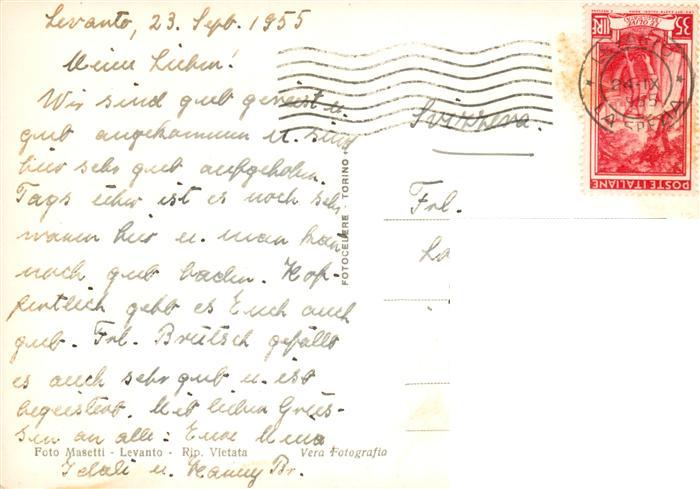 Levanto, 23. Sept. 1955
Meine Lieben!
Wir sind gut gereist u.
gut angekommen u. sind
hier sehr gut aufgehoben.
Tags über ist es noch sehr
warm hier u. man kann
noch gut baden. Hof-
fentlich geht es Euch auch
gut. Frl. Brütsch gefällt
es auch sehr gut u. ist
begeistert. Mit lieben Grüs-
sen an alle: Eure
u. Br.
Foto Masetti - Levanto - Rip. Vietata
Vera Fotografia
FOTOCELERE TORINO
Svizzera.
Frl.
LIRE 35
POSTE ITALIANE
24-IX
LA SPEZIA